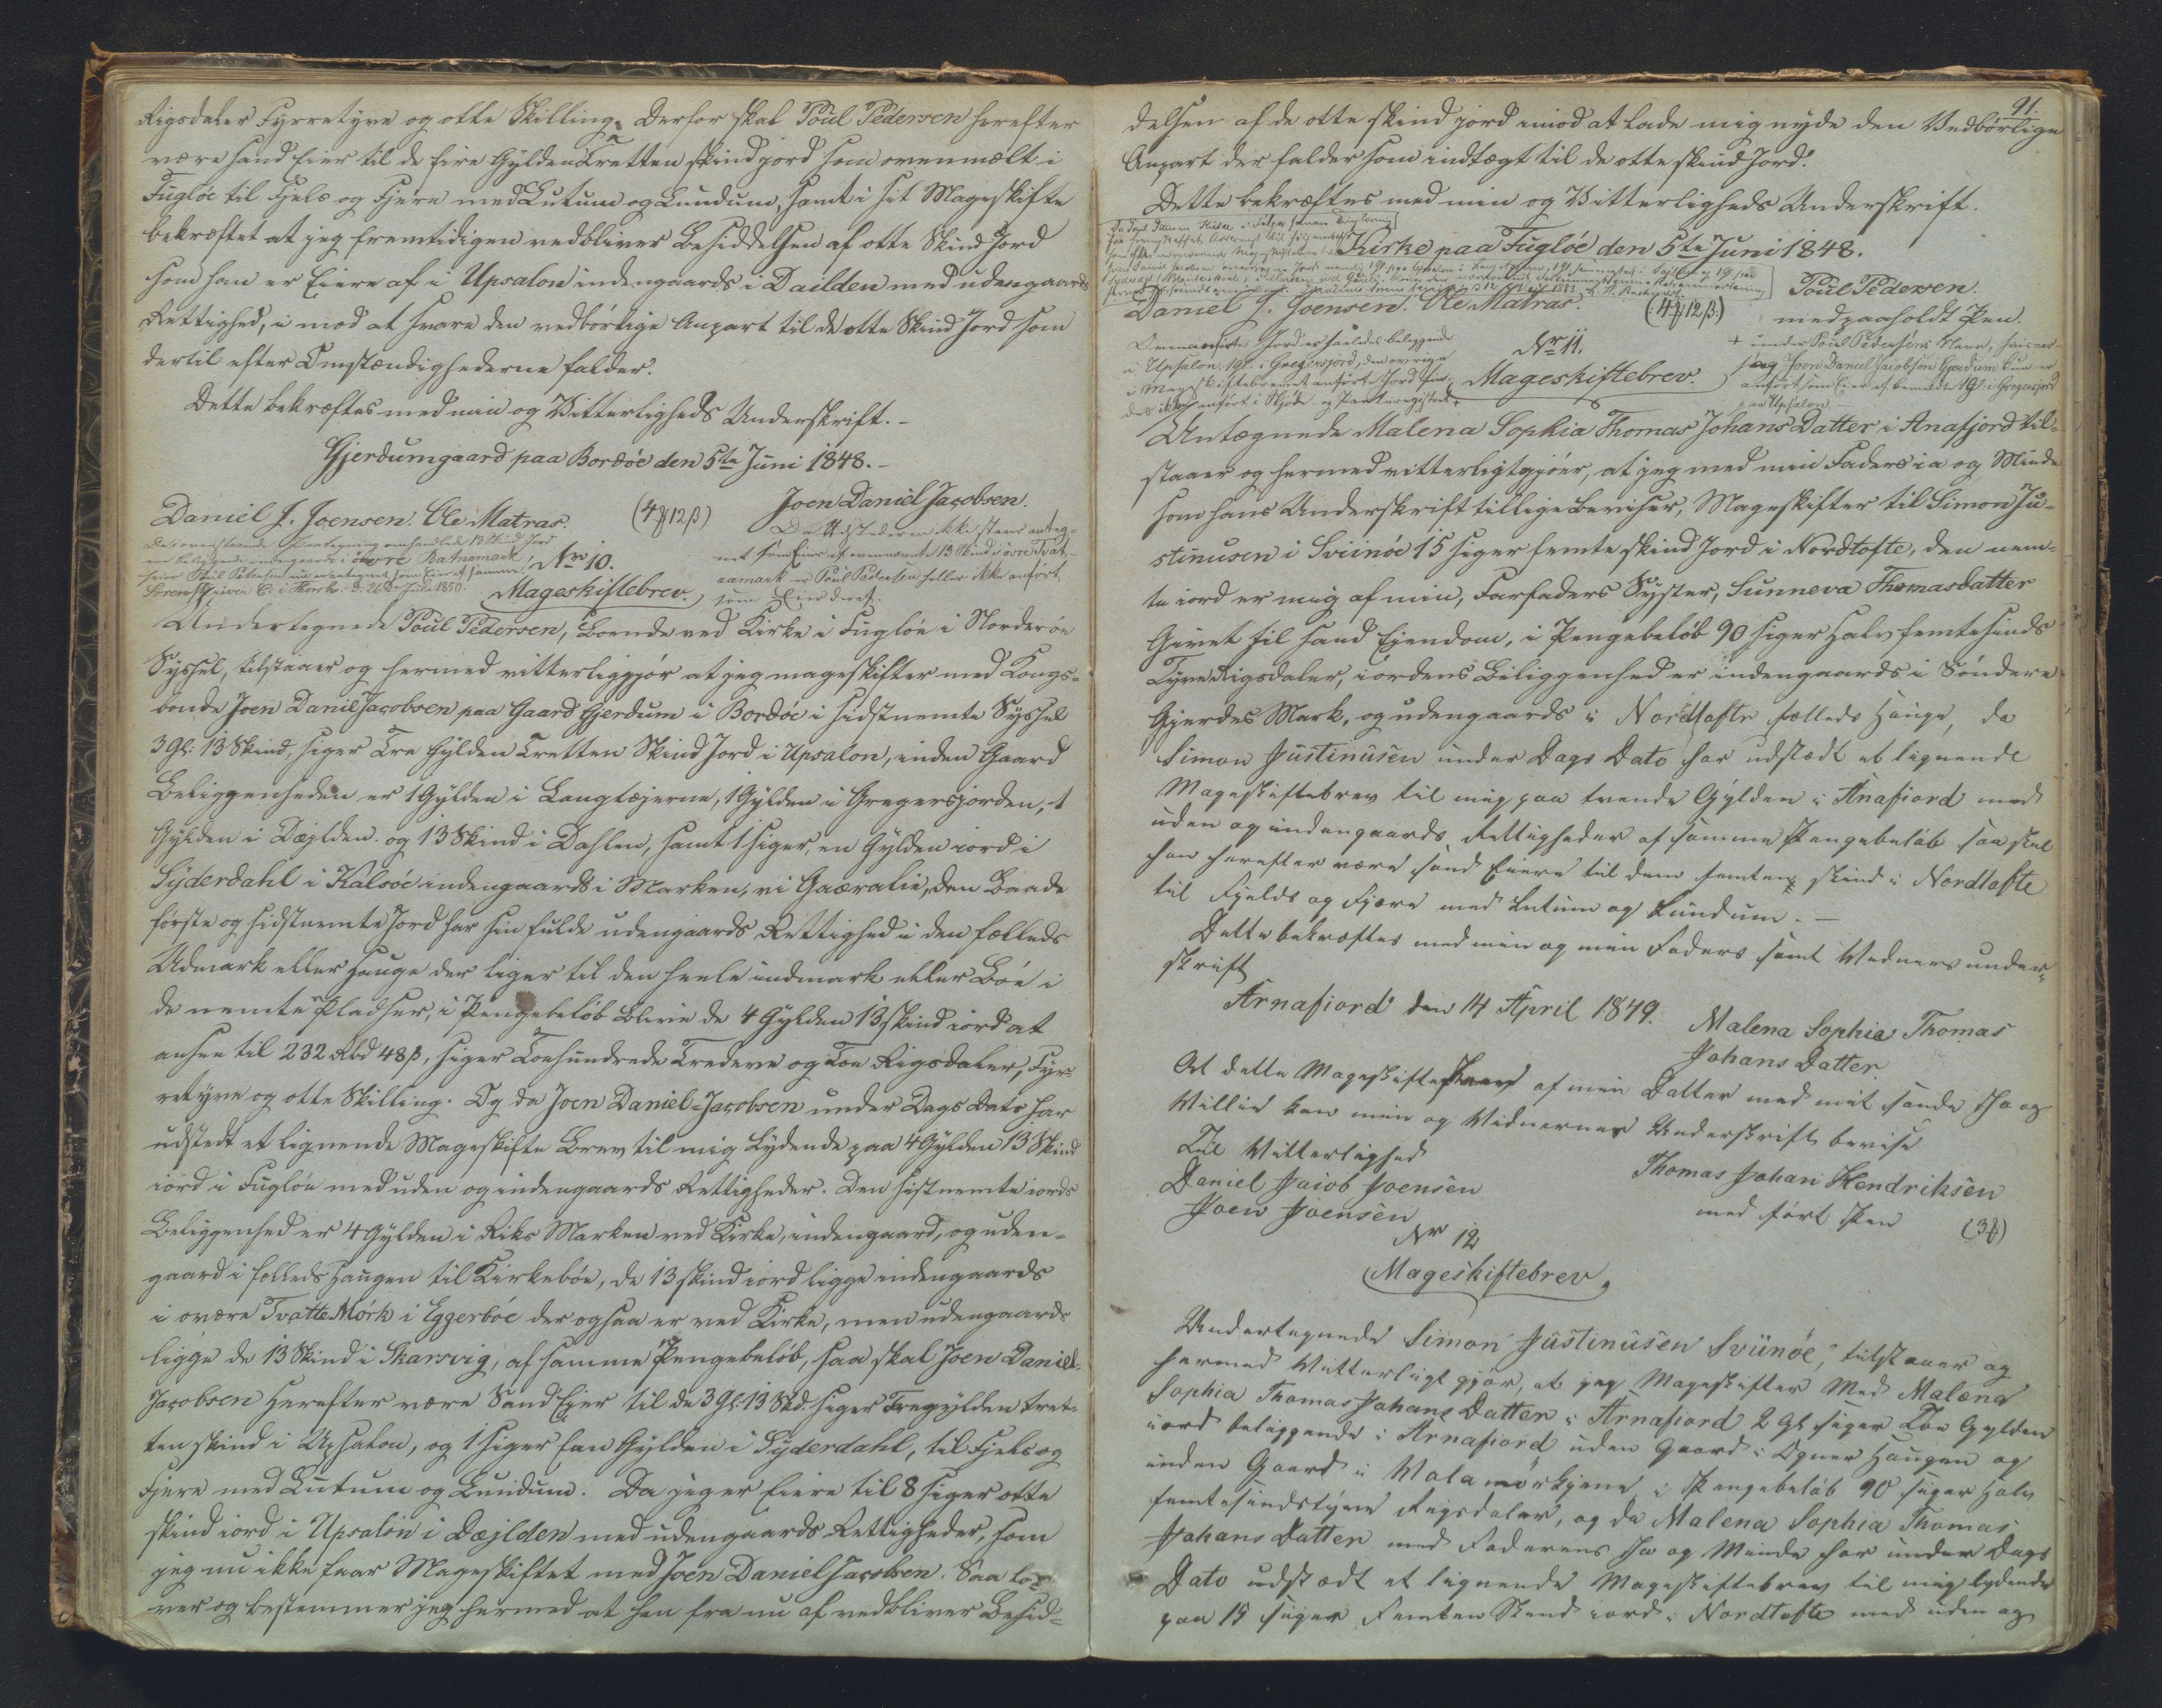 Rigsdaler Fyrretyve og otte Skilling. Derfor skal Poul Pedersen herefter
være sand Eier til de fire Gylden Tretten skind jord som ovenmælt i
Fugløe til Fjels og Fjere med Lutum og Lundum, samt i sit Mageskifte
bekræftet at jeg fremtidigen vedbliver Besiddelsen af otte Skind Jord
som han er Eiere af i Upsalon indengaards i Dailden med udengaards
Rettighed, i mod at svare den vedbørlige Anpart til de otte Skind Jord som
dertil efter Omstændighederne falder.
Dette bekræftes med min og Vitterligheds Underskrift.-
Gjerdumgaard paa Bordöe den 5te Juni 1848.-
Joen Daniel Jacobsen.
Daniel J. Joensen. Ole Matras.
(4 12 ß)
Nr 10.
Mageskiftebrev.
Undertegnede Poul Pedersen, Boende ved Kirke i Fugløe i Norderöe
Syssel, tilstaaer og hermed vitterliggjör at jeg mageskifter med Kongs-
bonde Joen Daniel Jacobsen paa Gaard Gjerdum i Bordöe i sidstnemte Syssel
3 Gl: 13 Skind, siger Tre Gylden Tretten Skind Jord i Upsalon, inden Gaard
Beliggenheden er 1 Gylden i Langtæjerne, 1 Gylden i Gregersjorden, 1
Gylden i Dæjlden. og 13 Skind i Dahlen, samt 1 siger, en Gylden iord i
Syderdahl i Kalsöe indengaards i Marken, vi Gaæralie, den Baade
første og sidstnemte Jord har sin fulde udengaards Rettighed i den fælleds
Udmark eller Hauge der ligger til den heele indmark eller Böe i
de nemte Pladser, i Pengebeløb bliver de 4 Gylden 13 skind iord at
ansee til 232 Rbd 48 ß, siger Toehundrede Tredeve og Toe Rigsdaler, Fyr-
retyve og otte Skilling. Og da Joen Daniel Jacobsen under Dags Dato har
udstedt et lignende Mageskifte Brev til mig Lydende paa 4 Gylden 13 Skind
iord i Fugløe med uden og indengaards Rettigheder. Den sistnemte iords
Beliggenhed er 4 Gylden i Riks Marken ved Kirke, indengaard, og uden-
gaard i felleds Haugen til Kirkeböe, de 13 skind iord ligge indengaards
i ovære Tvatte Mork i Eggerböe der ogsaa er ved Kirke, men udengaards
ligge de 13 Skind i Skarsvig, af samme Pengebeløb, saa skal Joen Daniel
Jacobsen herefter være Sand Eier til de 3 Gl: 13 Skd. siger Tregylden tret-
ten skind i Upsalon, og 1 siger Een Gylden i Syderdahl, til Fjels og
Fjere med Lutum og Lundum. Da jeg er Eiere til 8 siger otte
skind iord i Upsalon i Dæjlden med udengaards Rettigheder, som
jeg nu ikke faar Mageskiftet med Joen Daniel Jacobsen. Saa lo-
ver og bestemmer jeg hermed at han fra nu af vedbliver Besid-
91.
delsen af de otte skind jord imod at lade mig nyde den Vedbørlige
Anpart der falder som indtægt til de otte skind Jord.
Dette bekræftes med min og Vitterligheds Underskrift.
Kirke paa Fugløe den 5te Juni 1848.
Poul Pedersen.
med paaholdt Pen.
Daniel J. Joensen. Ole Matras.
(4 12 ß.)
Ovenanførte Jord er saaledes beliggende
i Upsalon: 1 Gl. i Gregersjord, den øvrige
i Mageskiftebrevet anførte Jord
+ under Poul Pedersens Navn,
Joen Daniel Jacobsen Gjærdum kun er
anført som Eier af bemeldte 1 Gl. i Gregersjord
paa Upsalon
Nr 11.
Mageskiftebrev.
Untægnede Malena Sophia Thomas Johans Datter i Anafjord til-
staaer og hermed vitterligtgjöer, at jeg med min Faders ia og Minde
som hans Underskrift tillige beviser, Mageskifter til Simon Ju-
stinusen i Sviinöe 15 siger femte skind Jord i Nordtofte, den nem-
te iord er mig af min, Farfaders Syster, Sunneva Thomasdatter
Givet til sand Ejendom, i Pengebeløb 90 siger Halv femtesinds
Tyve Rigsdaler, iordens Beliggenhed er indengaards i Söndere
Gjerdes Mark, og udengaards i Nordtofte fælleds Hauge, da
Simon Justinusen under Dags Dato har udstædt et lignende
Mageskiftebrev til mig paa tvende Gylden i Anafiord med
uden og indengaards Rettigheder af samme Pengebeløb saa skal
han herefter være sand Eiere til dem femten skind i Nordtofte
til Fjelds og Fjære med Lutum og Lundum.-
Dette bekræftes med min og min Faders samt Vedners under-
skrift
Arnafiord den 14 April 1849.
Malena Sophia Thomas
Johans Datter
At dette Mageskifte af min Datter med mit sande Ja og
Villie kan min og Vidnernes Underskrift bevise
Til Vitterlighed
Daniel Jaiob Joensen
Joen Joensen
Thomas Johan Hendriksen
med ført Pen
Nr 12
Mageskiftebrev
Undertegnede Simon Justinusen Sviinöe, tilstaaer og
hermed Vitterligt gjør, at jeg Mageskifter Med Malena
Sophia Thomas Johans Datter i Arnafiord 2 Gl siger Toe Gylden
iord beliggende i Arnafiord uden Gaard i Ogner Haugen og
inden Gaard i Vala mörkjene i Pengebeløb 90 siger Halv
femtesindstyve Rigsdaler, og da Malena Sophia Thomas
Johans Datter med Faderens Ja og Minde har under Dags
Dato udstædt et lignende Mageskiftebrev til mig lydende
paa 15 siger Femten Skind iord i Nordtofte med uden og